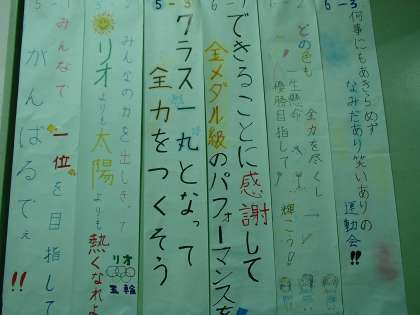 6-3
何事にもあきらめず
なみだあり笑いありの
運動会!!
どの色も
全力を尽くし
一生懸命
優勝目指して
輝こう!!
できることに感謝して
金メダル級のパフォーマンスを
5-3
クラス一丸となって
全力をつくそう
みんなの力を出しきって
リオよりも太陽よりも熱くなれよ
リオ
五輪
5-1
みんなで一位を目指して
がんばるでぇ!!